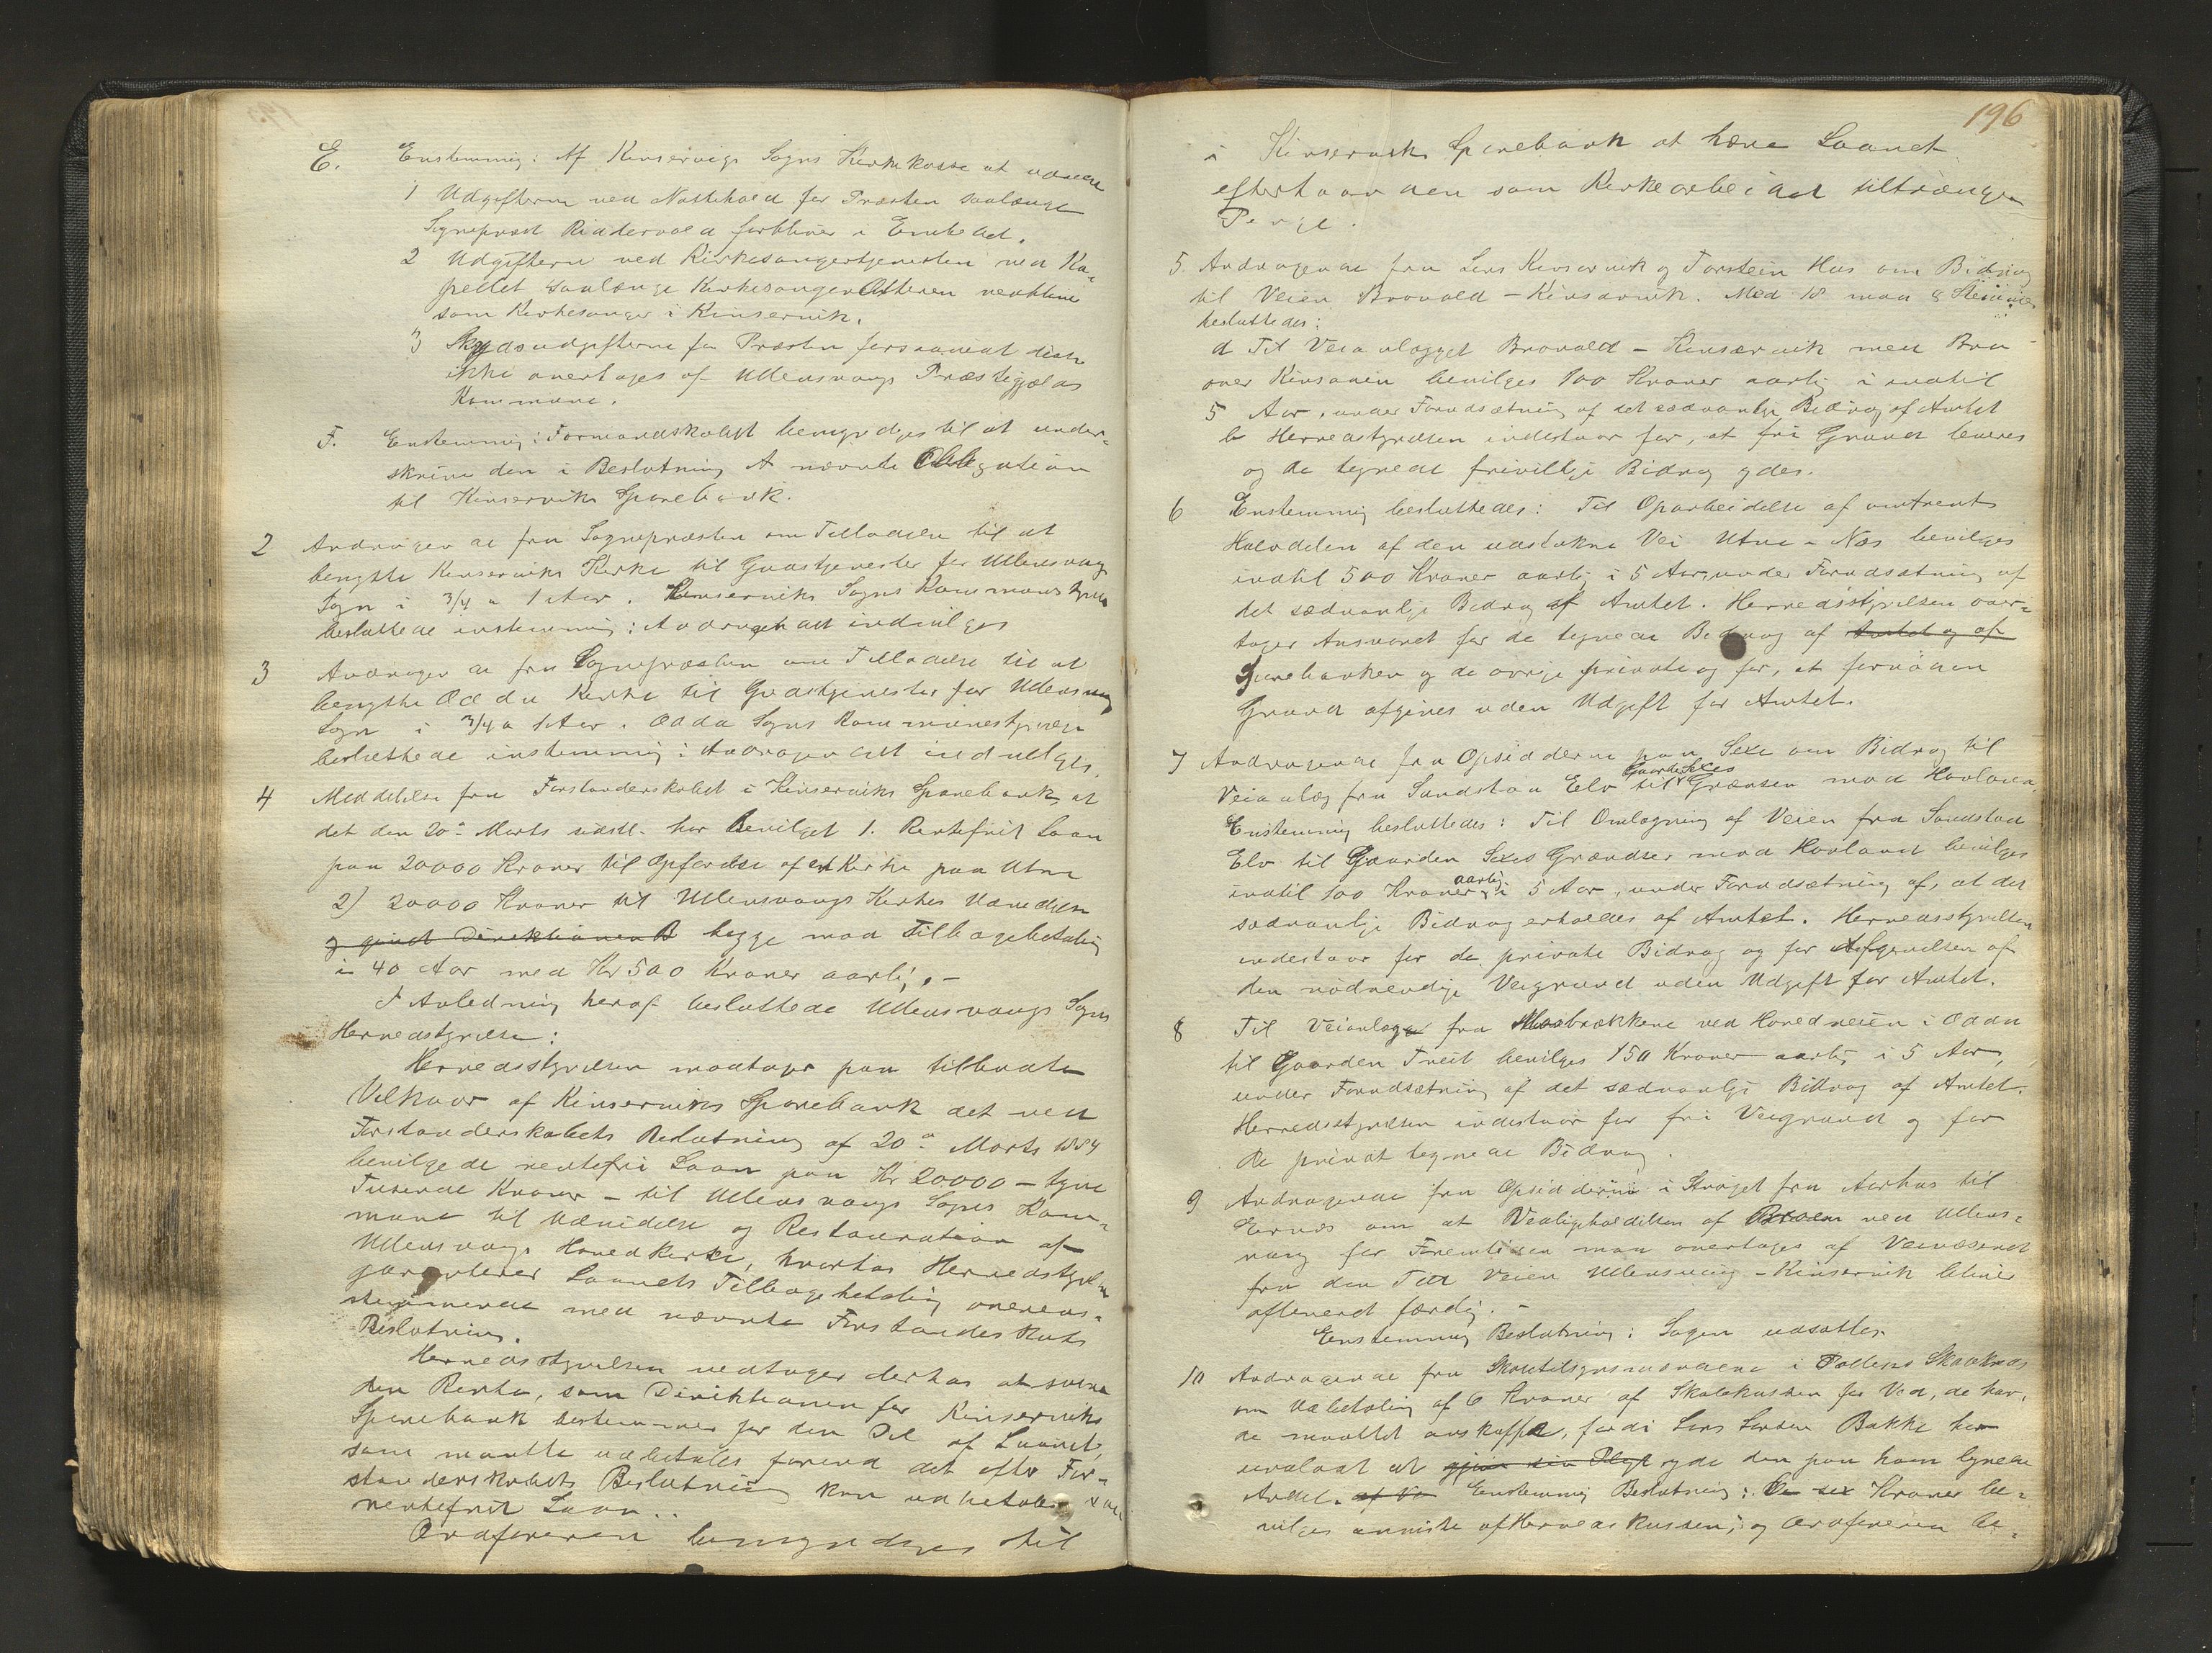 E. Enstemmig: Af Kinserviks Sogns Kirkekasse at udrede
1 Udgifterne ved Nattehold for Præsten saalænge
Sognepræst Riddervold forbliver i Embedet.
2 Udgifterne ved Kirkesangertjenesten ved Ka-
pellet saalænge Kirkesanger Altheren vedbliver
som Kirkesanger i Kinservik.
3 Skydsudgifterne for Præsten forsaavidt disse
ikke overtages af Ullensvangs Præstegjælds
Kommune.
F. Enstemmig: Formandskabet bemyndiges til at under-
skrive den i Beslutning A nævnte Obligation
til Kinserviks Sparebank.
2 Andragende fra Sognepræsten om Tilladelse til at
benytte Kinserviks Kirke til Gudstjenester for Ullensvangs
Sogn i 3/4 a 1 Aar. Kinserviks Sogns Kommunestyrelse
besluttede enstemmig: Andragendet indvilges
3 Andragende fra Sognepræsten om Tilladelse til at
benytte Odda Kirke til Gudstjenester for Ullensvang
Sogn i 3/4 a 1 Aar. Odda Sogns Kommunestyrelse
besluttede enstemmig: Andragendet indvilges.
4 Meddelelse fra Forstanderskabet i Kinserviks Sparebank, at
det den 20de Marts sidstl. har bevilget 1. Rentefrit Laan
paa 20000 Kroner til Opførelse af en Kirke paa Utne
2) 20000 Kroner til Ullensvangs Kirkes Udvidelse
og givet Direktionen B begge mod Tilbagebetaling
i 40 Aar med Kr 500 Kroner aarlig. -
I Anledning heraf besluttede Ullensvangs Sogns
Herredsstyrelse:
Herredsstyrelsen modtager paa tilbudte
Vilkaar af Kinserviks Sparebank det ved
Forstanderskabets Beslutning af 20de Marts 1884
bevilgede rentefri Laan paa Kr 20000 - tyve
Tusende Kroner - til Ullensvangs Sogns Kom-
mune til Udvidelse og Restauration af
Ullensvangs Hovedkirke, hvorhos Herredsstyrelsen
garanterer Laanets Tilbagebetaling overens-
stemmende med nævnte Forstanderskabs
Beslutning.
Herredsstyrelsen vedtager derhos at svare
den Rente, som Direktionen for Kinserviks
Sparebank bestemmer for den Del af Laanet,
som maatte udbetales forend det efter For-
standerskabets Beslutning kan udbetales som
rentefrit Laan..
Ordføreren bemyndiges til
196
i Kinserviks Sparebank at hæve Laanet
efterhaanden som Kirkearbeidet tiltrænger
Penge.
5. Andragende fra Lars Kinservik og Torstein Hus om Bidrag
til Veien Bråvold - Kinsarvik. Med 18 mod 8 Stemmer
besluttedes:
a Til Veianlægget Bråvold - Kinsarvik med Bro
over Kinsoelven bevilges 100 Kroner aarlig i indtil
5 Aar, under Forudsætning af det sædvanlige Bidrag af Amtet
b Herredstyrelsen indestaar for, at fri Grund leveres
og de tegnede frivillige Bidrag ydes.
6 Enstemmig besluttedes: Til Oparbeidelse af omtrent
Halvdelen af den udstukne Vei Utne - Næs bevilges
indtil 500 Kroner aarlig i 5 Aar, under Forudsætning af
det sædvanlige Bidrag af Amtet. Herredsstyrelsen over-
tager Ansvaret for de tegnede Bidrag af Amtet og af
Sparebanken og de øvrige private og for, at fornøden
Grund afgives uden Udgift for Amtet.
7 Andragende fra Opsidderne paa Sexe om Bidrag til
Veianlæg fra Sandstøa Elv til Gaarden Sexes Grænsen mod Hovland,
Enstemmig besluttedes: Til Omlægning af Veien fra Sandstøa
Elv til Gaarden Sexes Grændser mod Hovland bevilges
indtil 100 Kroner aarlig i 5 Aar, under Forudsætning af, at det
sædvanlige Bidrag erholdes af Amtet. Herredsstyrelsen
indestaar for de private Bidrag og for Afgivelsen af
den nødvendige Veigrund uden Udgift for Amtet.
8 Til Veianlæg fra brækkene ved Hovedveien i Odda
til Gaarden Freit bevilges 150 Kroner aarlig i 5 Aar,
under Forudsætning af det sædvanlige Bidrag af Amtet.
Herredsstyrelsen indestaar for fri Veigrund og for
de privat tegnede Bidrag.
9 Andragende fra Opsidderne i Strøget fra Aarhus til
Eernæs om at Vedligeholdelsen af Broen ved Ullens-
vang for Fremtiden maa overtages af Veivæsenet
fra den Tid Veien Ullensvang - Kinservik bliver
afleveret færdig. -
Enstemmig Beslutning: Sagen udsættes
10 Andragende fra Skoletilsynsmændene i Skolekreds
om Udbetaling af 6 Kroner af Skolekassen for Ved, de har,
de maattet anskaffe, fordi Lars Larsen Bakke har
undladt at gjøre sin Pligt yde den paa ham lignede
Andel. Enstemmig Beslutning: sex Kroner be-
vilges anviste af Herredskassen, og Ordføreren be-